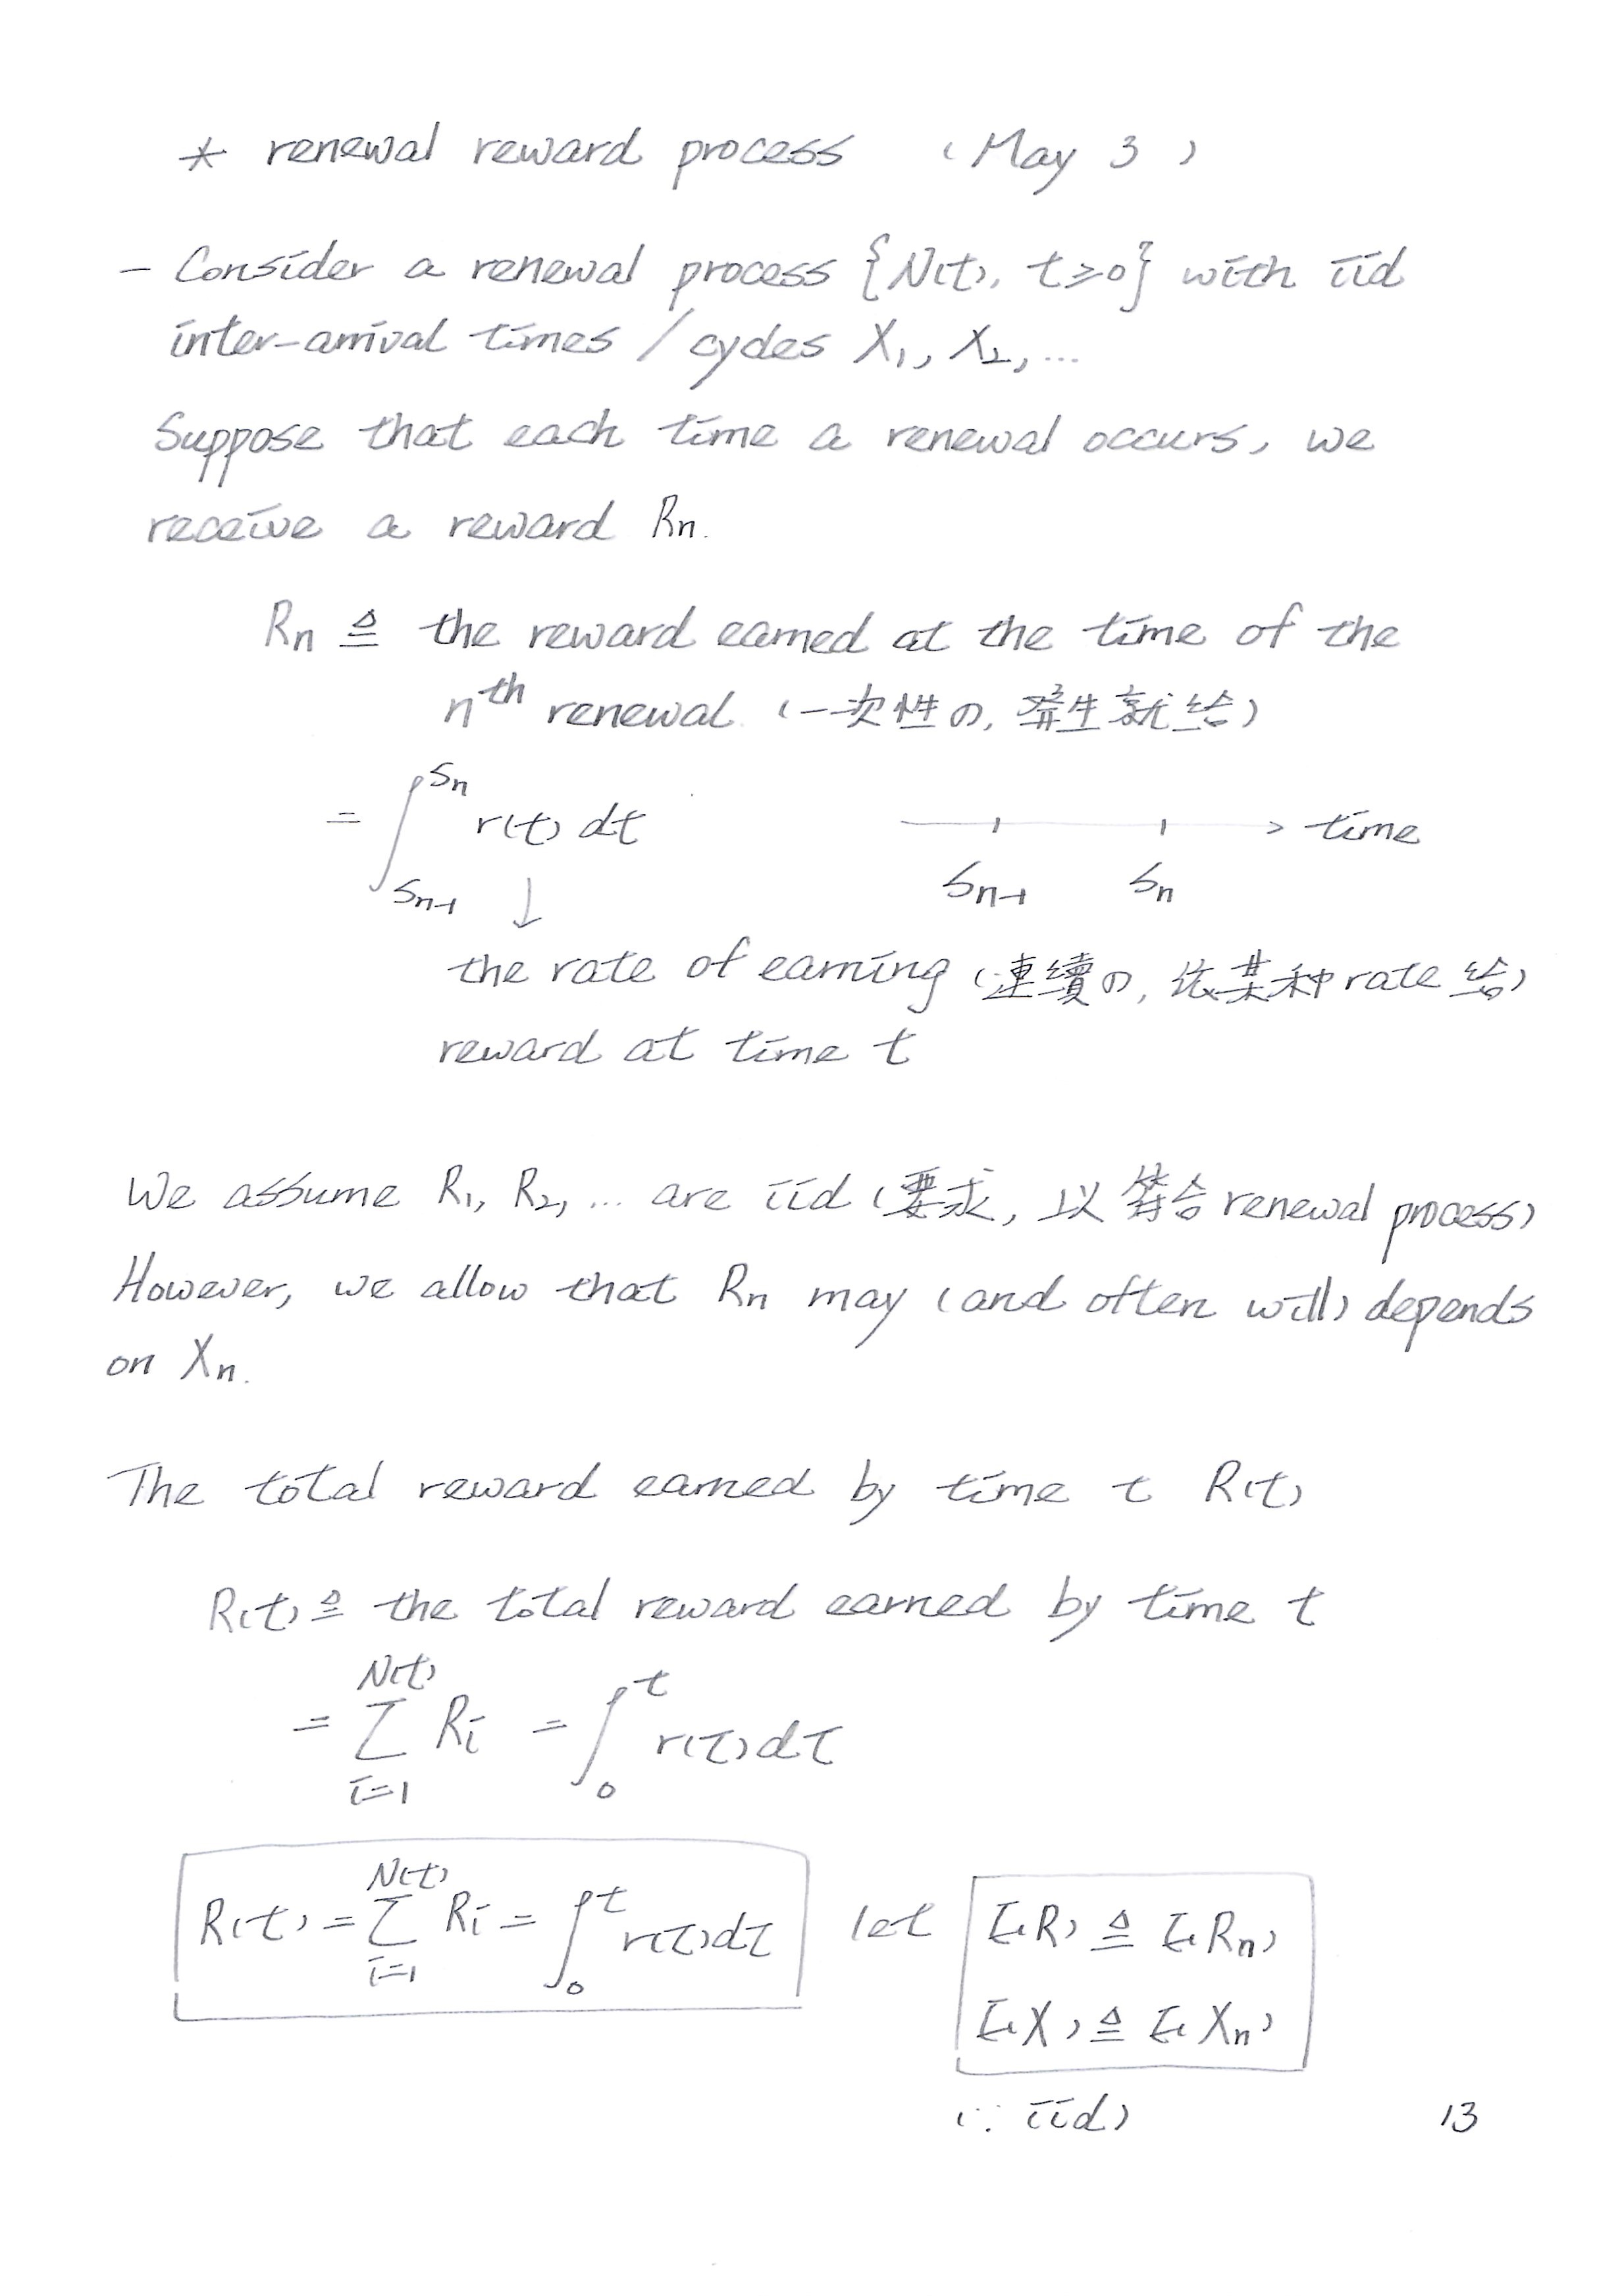 * renewal reward process (May 3)
- Consider a renewal process {N(t), t≥0} with iid
inter-arrival times / cycles X₁, X₂, ...
Suppose that each time a renewal occurs, we
receive a reward Rn.
Rn ≜ the reward earned at the time of the
nᵗʰ renewal (一次性の, 發生就給)
= ∫_{Sn-1}^{Sn} r(t) dt → time
Sn-1 Sn
↓
the rate of earning (連續の, 依某种 rate 給)
reward at time t
We assume R₁, R₂, ... are iid (要求, 以符合 renewal process)
However, we allow that Rn may (and often will) depends
on Xn.
The total reward earned by time t R(t)
R(t) ≜ the total reward earned by time t
= ∑_{i=1}^{N(t)} Ri = ∫_0^t r(τ)dτ
R(t) = ∑_{i=1}^{N(t)} Ri = ∫_0^t r(τ)dτ let E(R) ≜ E(Rn)
E(X) ≜ E(Xn)
(∵ iid)
13